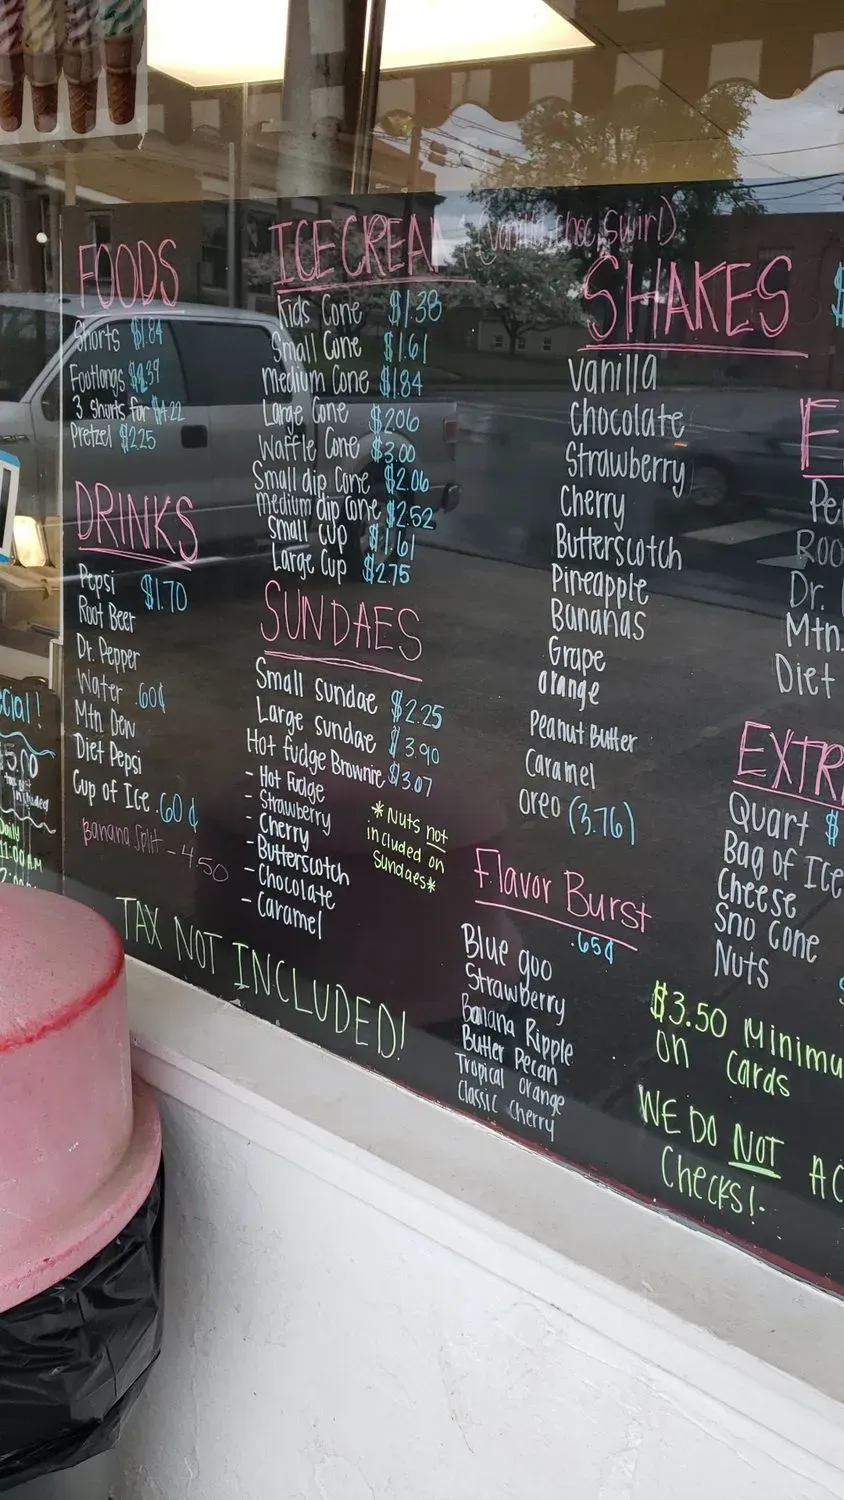 FOODS
Shorts $1.84
Footlongs
3 Shorts for $4.22
Pretzel $2.25
DRINKS
Pepsi $1.70
Root Beer
Dr. Pepper
Water .60¢
Mtn Dew
Diet Pepsi
Cup of Ice .60¢
Banana Split - 4.50
TAX NOT INCLUDED!
ICE CREAM (Vanilla, choc, swirl)
Kids Cone $1.38
Small Cone $1.61
Medium Cone $1.84
Large Cone $2.06
Waffle Cone $3.00
Small dip Cone $2.06
Medium dip Cone $2.52
Small Cup $1.61
Large Cup $2.75
SUNDAES
Small Sundae $2.25
Large Sundae $3.90
Hot fudge Brownie $3.07
- Hot Fudge
- Strawberry
- Cherry
- Butterscotch
- Chocolate
- Caramel
*Nuts not
included on
Sundaes*
SHAKES $
Vanilla
Chocolate
Strawberry
Cherry
Butterscotch
Pineapple
Bananas
Grape
Orange
Peanut Butter
Caramel
Oreo (3.76)
Flavor Burst
.65¢
Blue goo
Strawberry
Banana Ripple
Butter Pecan
Tropical Orange
Classic Cherry
F
Pe
Roo
Dr.
Mtn.
Diet
EXTR
Quart $
Bag of Ice
Cheese
Sno Cone
Nuts
$3.50 Minimu
on Cards
WE DO NOT AC
Checks!
cial!
$5.00
included
Daily
11:00 AM